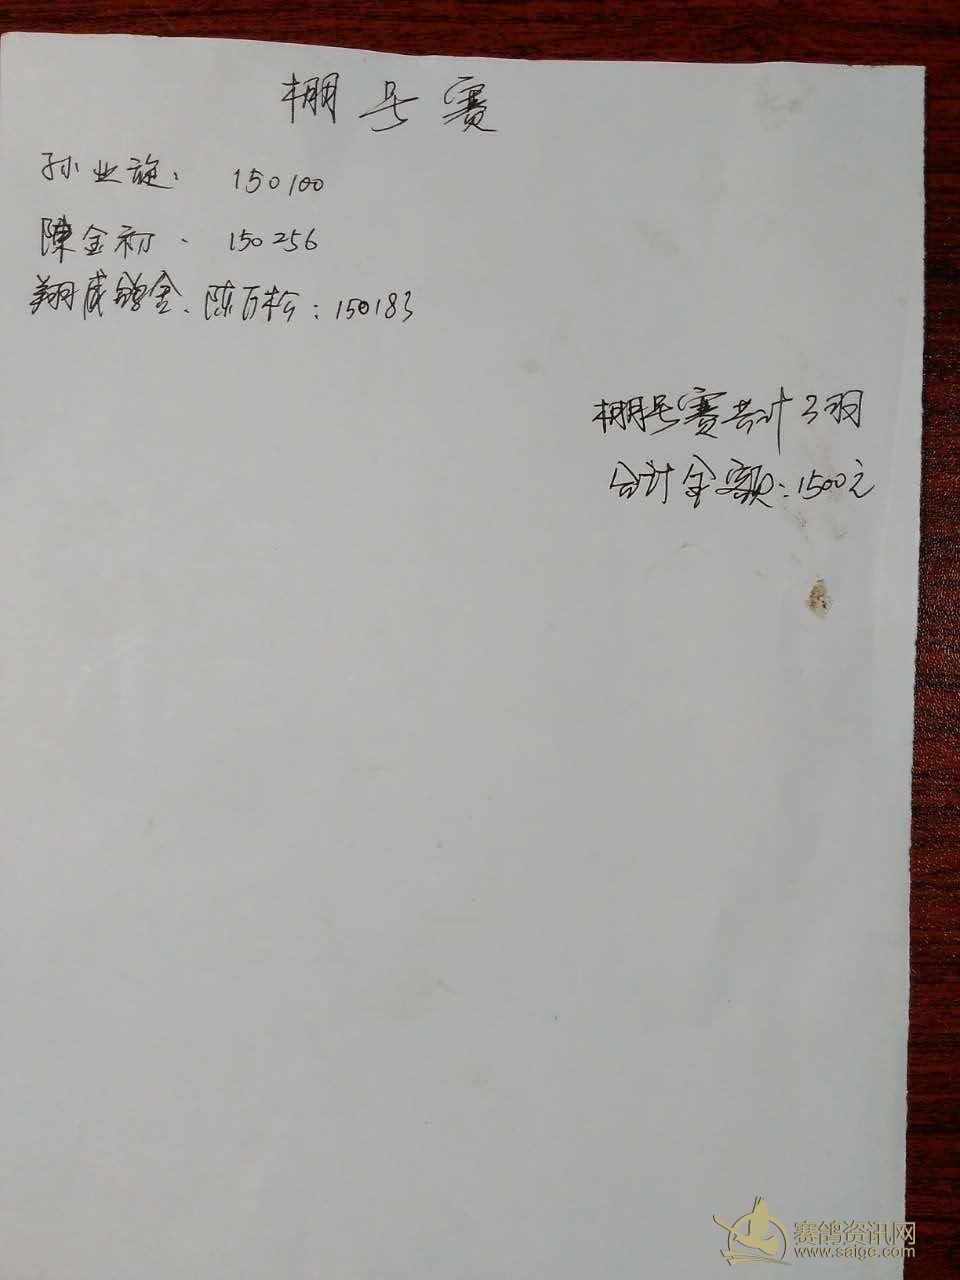 棚号赛
孙业旋: 150100
陳金初. 150256
翔威鸽舍、陈万松:150183
棚号赛共计3羽
合计金额:1500元
赛鸽资讯网
www.saigc.com